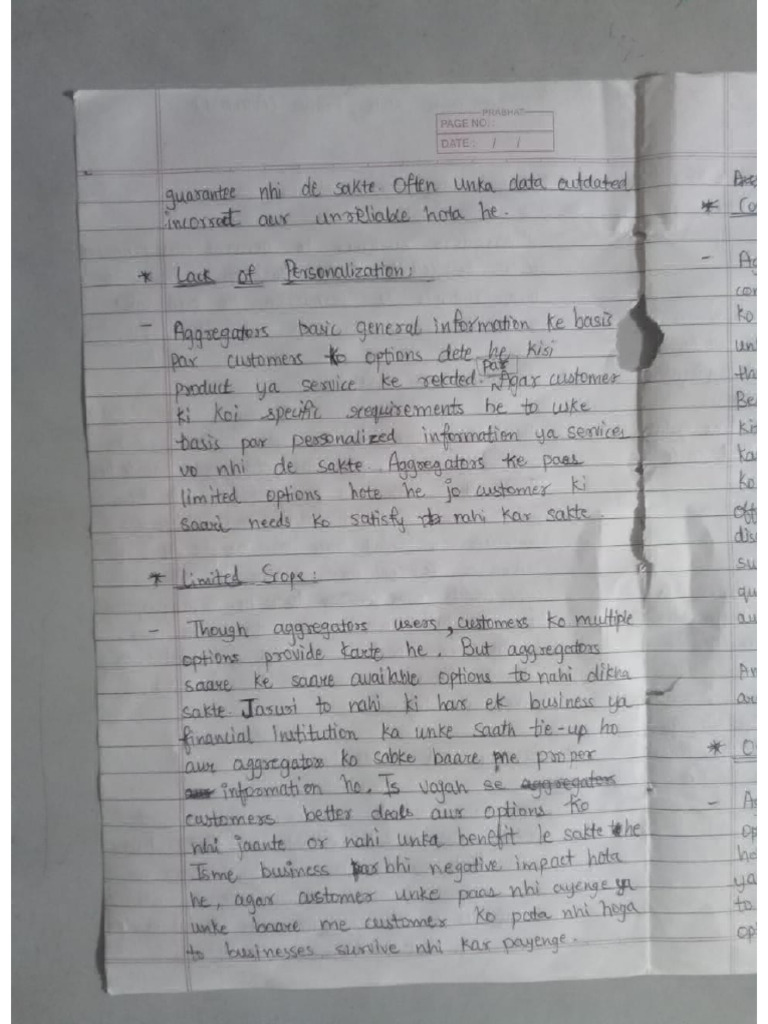 PRABHAT
PAGE NO.:
DATE: / /
guarantee nhi de sakte. Often unka data outdated
incorrect aur unreliable hota he.
* Lack of Personalization:
- Aggregators basic general information ke basis
par customers ko options dete he kisi
product ya service ke related. Par Agar customer
ki koi specific requirements he to uske
basis par personalized information ya services
vo nhi de sakte. Aggregators ke paas
limited options hote he jo customer ki
saari needs ko satisfy nahi kar sakte.
* Limited Scope:
- Though aggregators users, customers ko multiple
options provide karte he. But aggregators
saare ke saare available options to nahi dikha
sakte. Jaruri to nahi ki har ek business ya
financial Institution ka unke saath tie-up ho
aur aggregators ko sabke baare me proper
information ho. Is vajah se aggregators
customers better deals aur options ko
nhi jaante or nahi unka benefit le sakte he
Isme business par bhi negative impact hota
he, agar customer unke paas nhi ayenge ya
unke baare me customer ko pata nhi hoga
to businesses survive nhi kar payenge.
* Co
- Ag
con
ko
un
tha
Be
ki
ka
ko
Oft
dis
su
qu
au
An
ar
* O
- As
op
he
ya
to
op